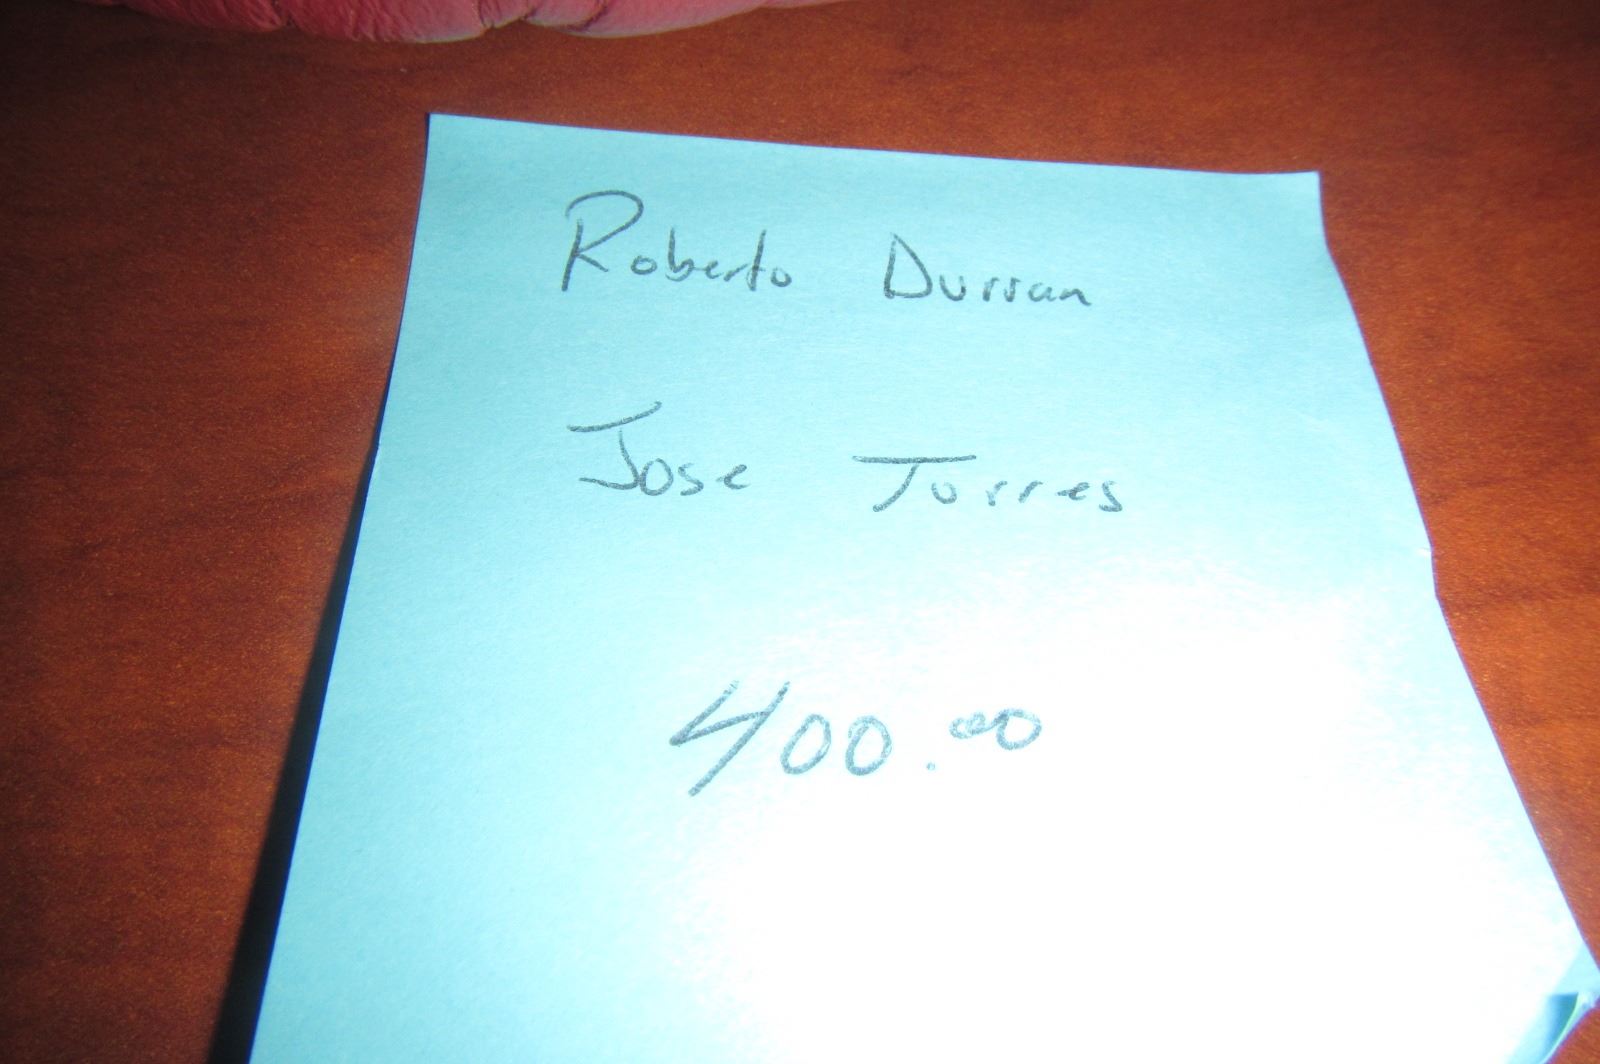 Roberto Durran
Jose Torres
400.00